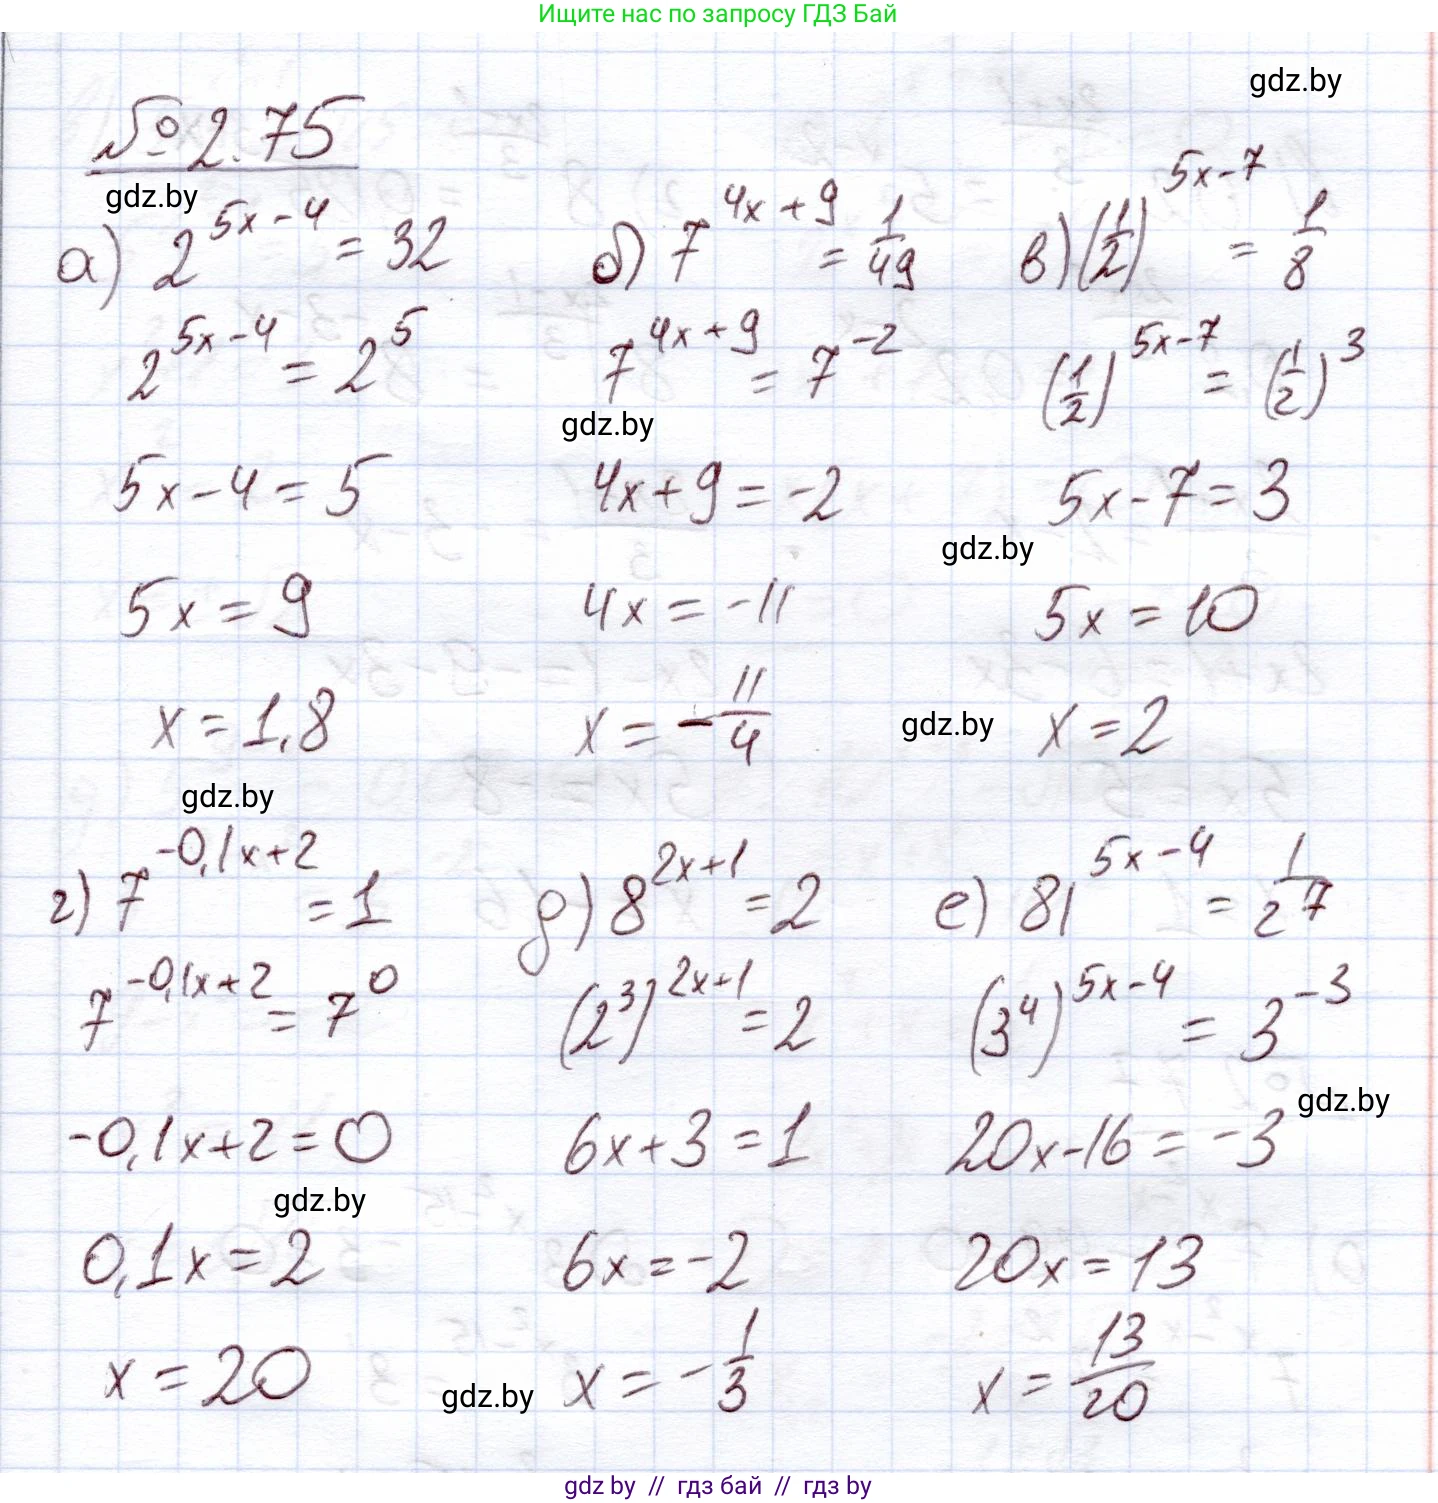 Ищите нас по запросу ГДЗ Бай
gdz.by
№ 2.75
gdz.by
а) 2^(5x-4) = 32
2^(5x-4) = 2^5
5x-4=5
5x=9
x=1,8
gdz.by
б) 7^(4x+9) = 1/49
7^(4x+9) = 7^(-2)
gdz.by
4x+9=-2
4x=-11
x=-11/4
в) (1/2)^(5x-7) = 1/8
(1/2)^(5x-7) = (1/2)^3
5x-7=3
gdz.by
5x=10
gdz.by
x=2
г) 7^(-0,1x+2) = 1
7^(-0,1x+2) = 7^0
-0,1x+2=0
gdz.by
0,1x=2
x=20
д) 8^(2x+1) = 2
(2^3)^(2x+1) = 2
6x+3=1
6x=-2
x=-1/3
gdz.by
е) 81^(5x-4) = 1/27
(3^4)^(5x-4) = 3^(-3)
gdz.by
20x-16=-3
20x=13
x=13/20
gdz by // гдз бай // гдз by